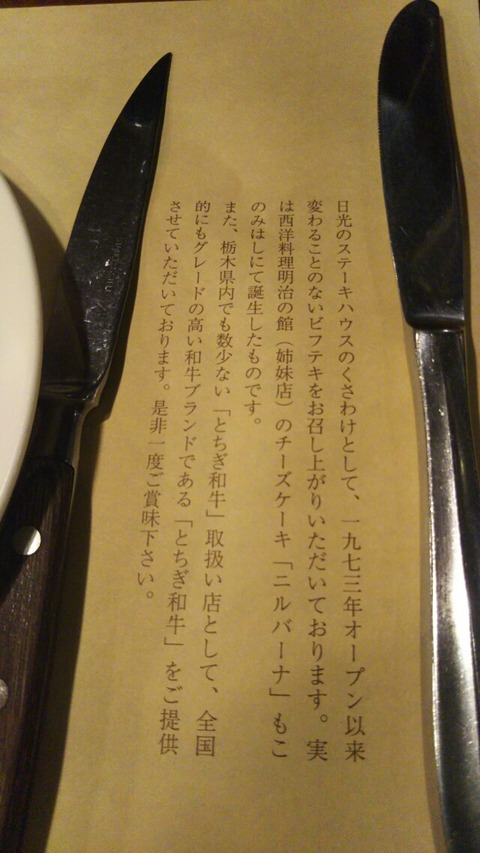 日光のステーキハウスのくさわけとして、一九七三年オープン以来
変わることのないビフテキをお召し上がりいただいております。実
は西洋料理明治の館（姉妹店）のチーズケーキ「ニルバーナ」もこ
のみはしにて誕生したものです。
また、栃木県内でも数少ない「とちぎ和牛」取扱い店として、全国
的にもグレードの高い和牛ブランドである「とちぎ和牛」をご提供
させていただいております。是非一度ご賞味下さい。